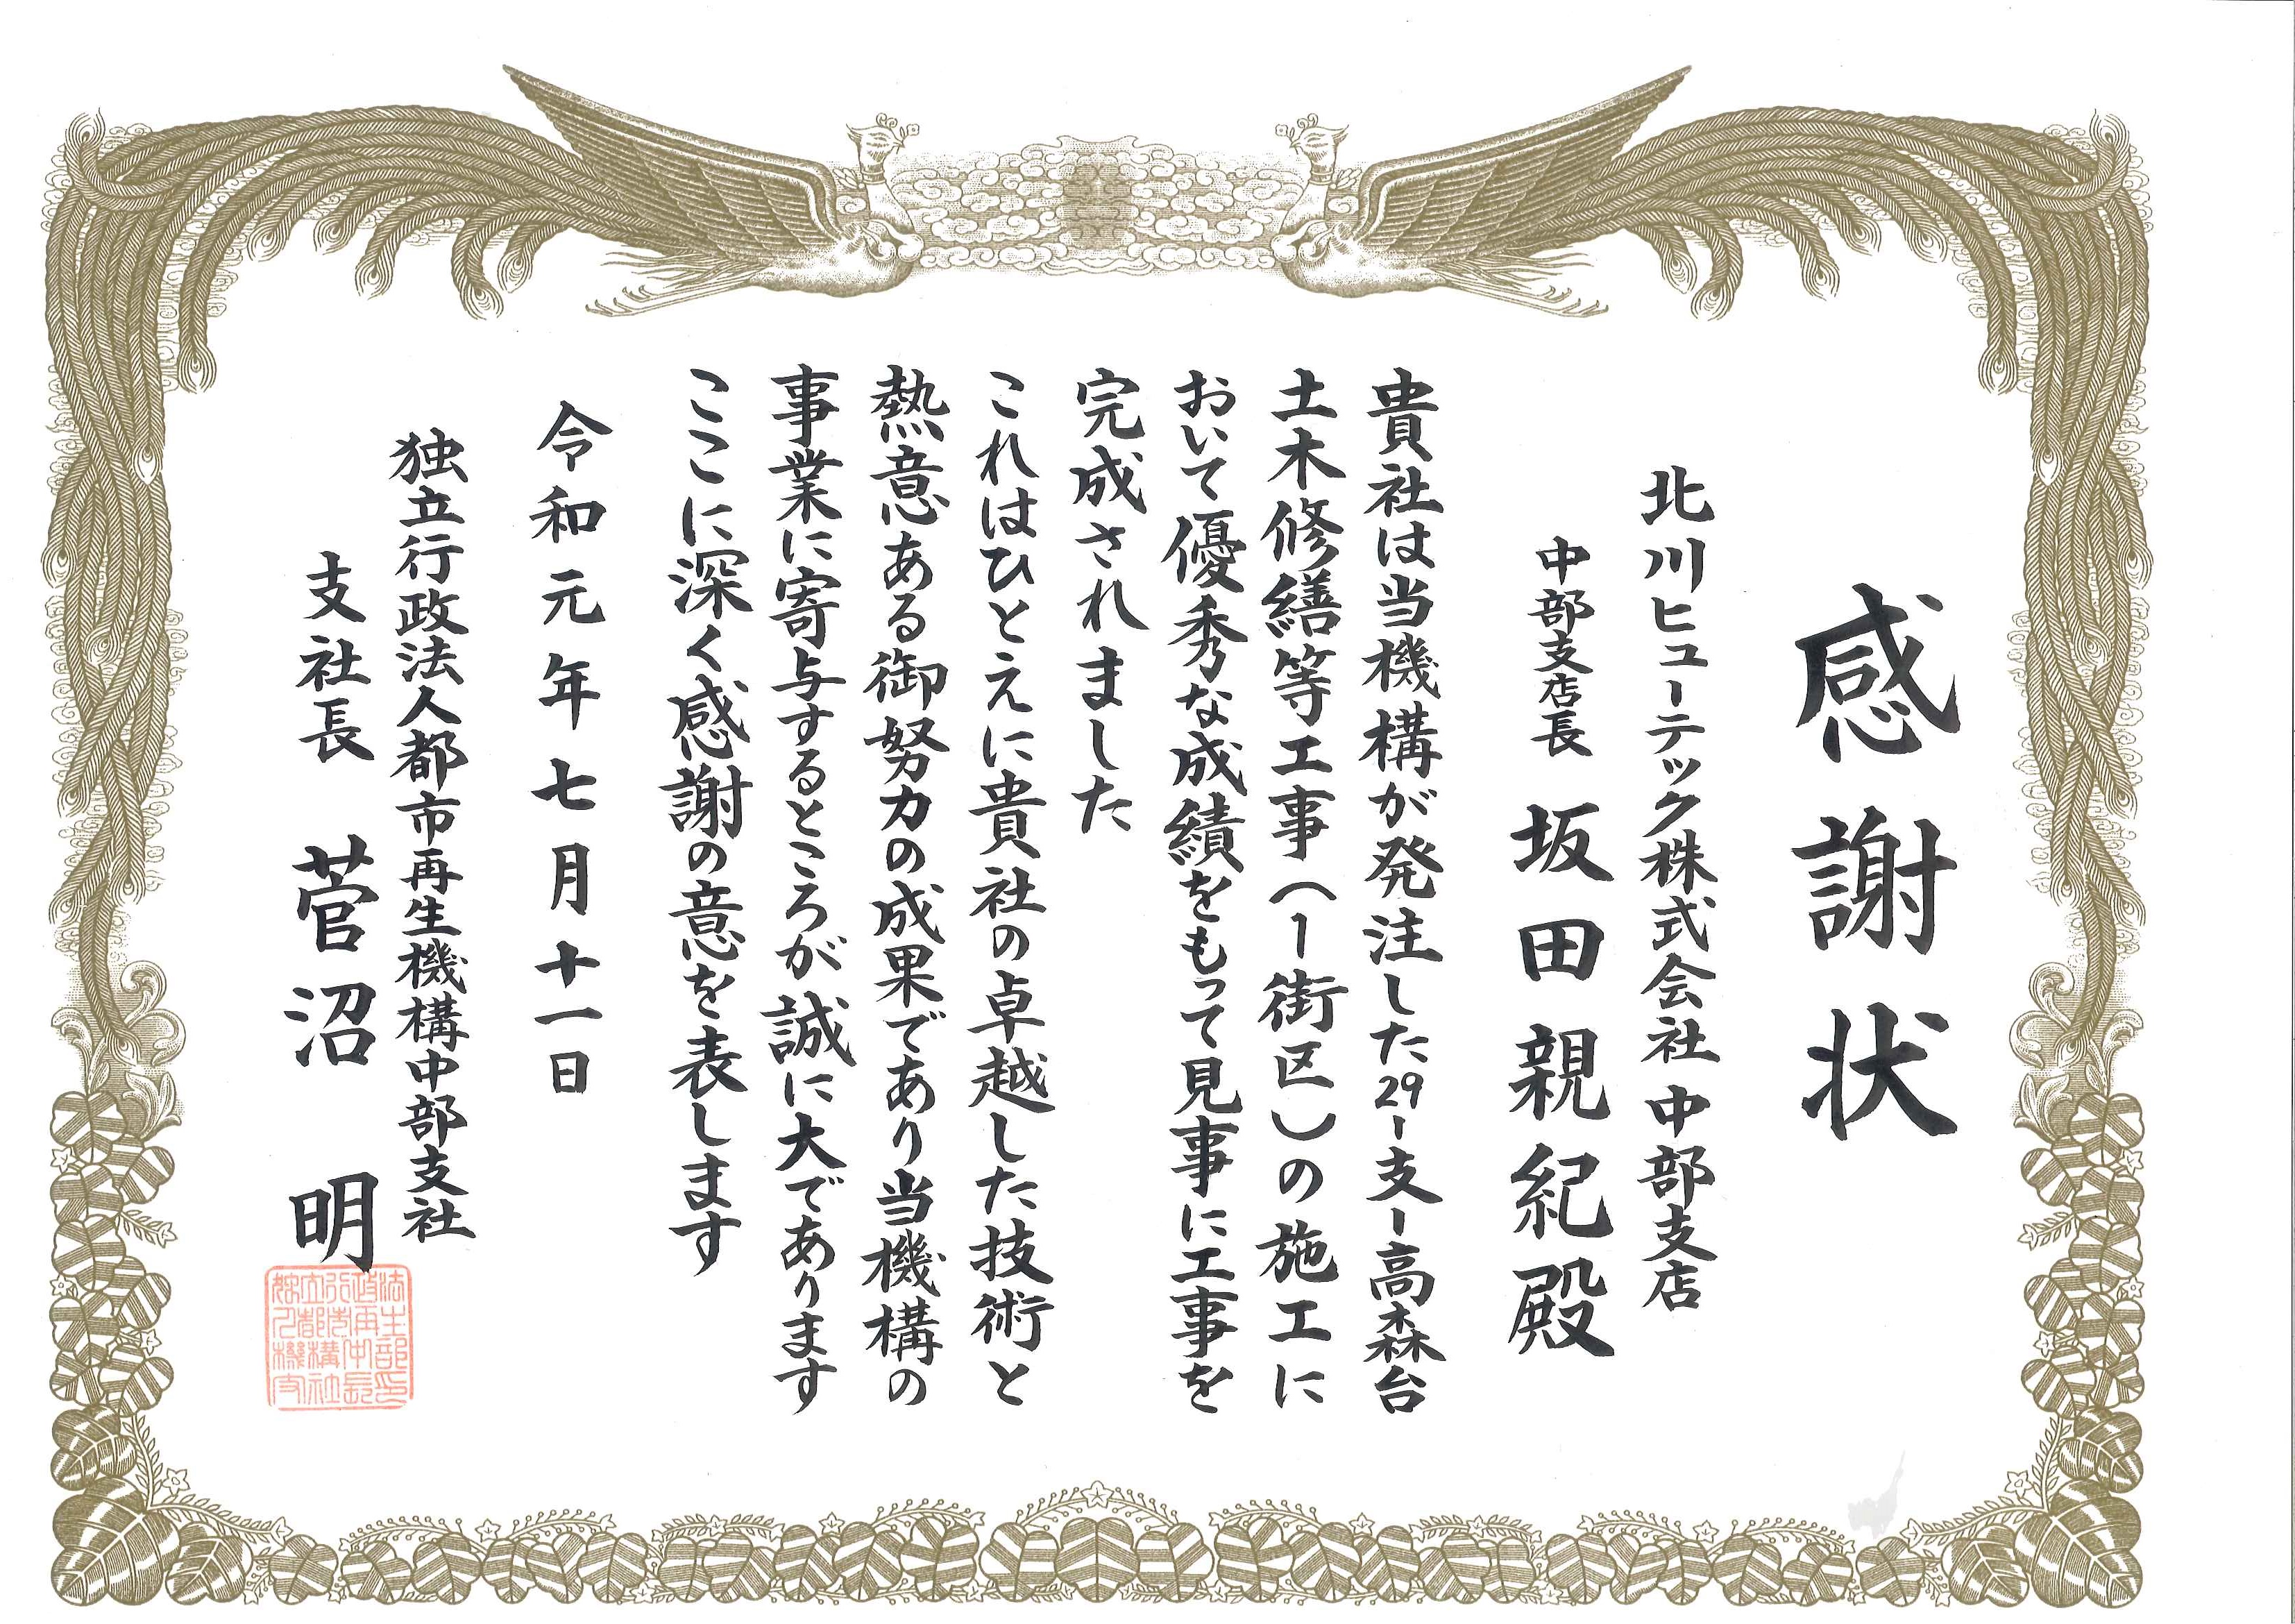 感謝状
北川ヒューテック株式会社 中部支店
中部支店長 坂田親紀殿
貴社は当機構が発注した29-支-高森台
土木修繕等工事(1街区)の施工に
おいて優秀な成績をもって見事に工事を
完成されました
これはひとえに貴社の卓越した技術と
熱意ある御努力の成果であり当機構の
事業に寄与するところが誠に大であります
ここに深く感謝の意を表します
令和元年七月十一日
独立行政法人都市再生機構中部支社
支社長 菅沼 明